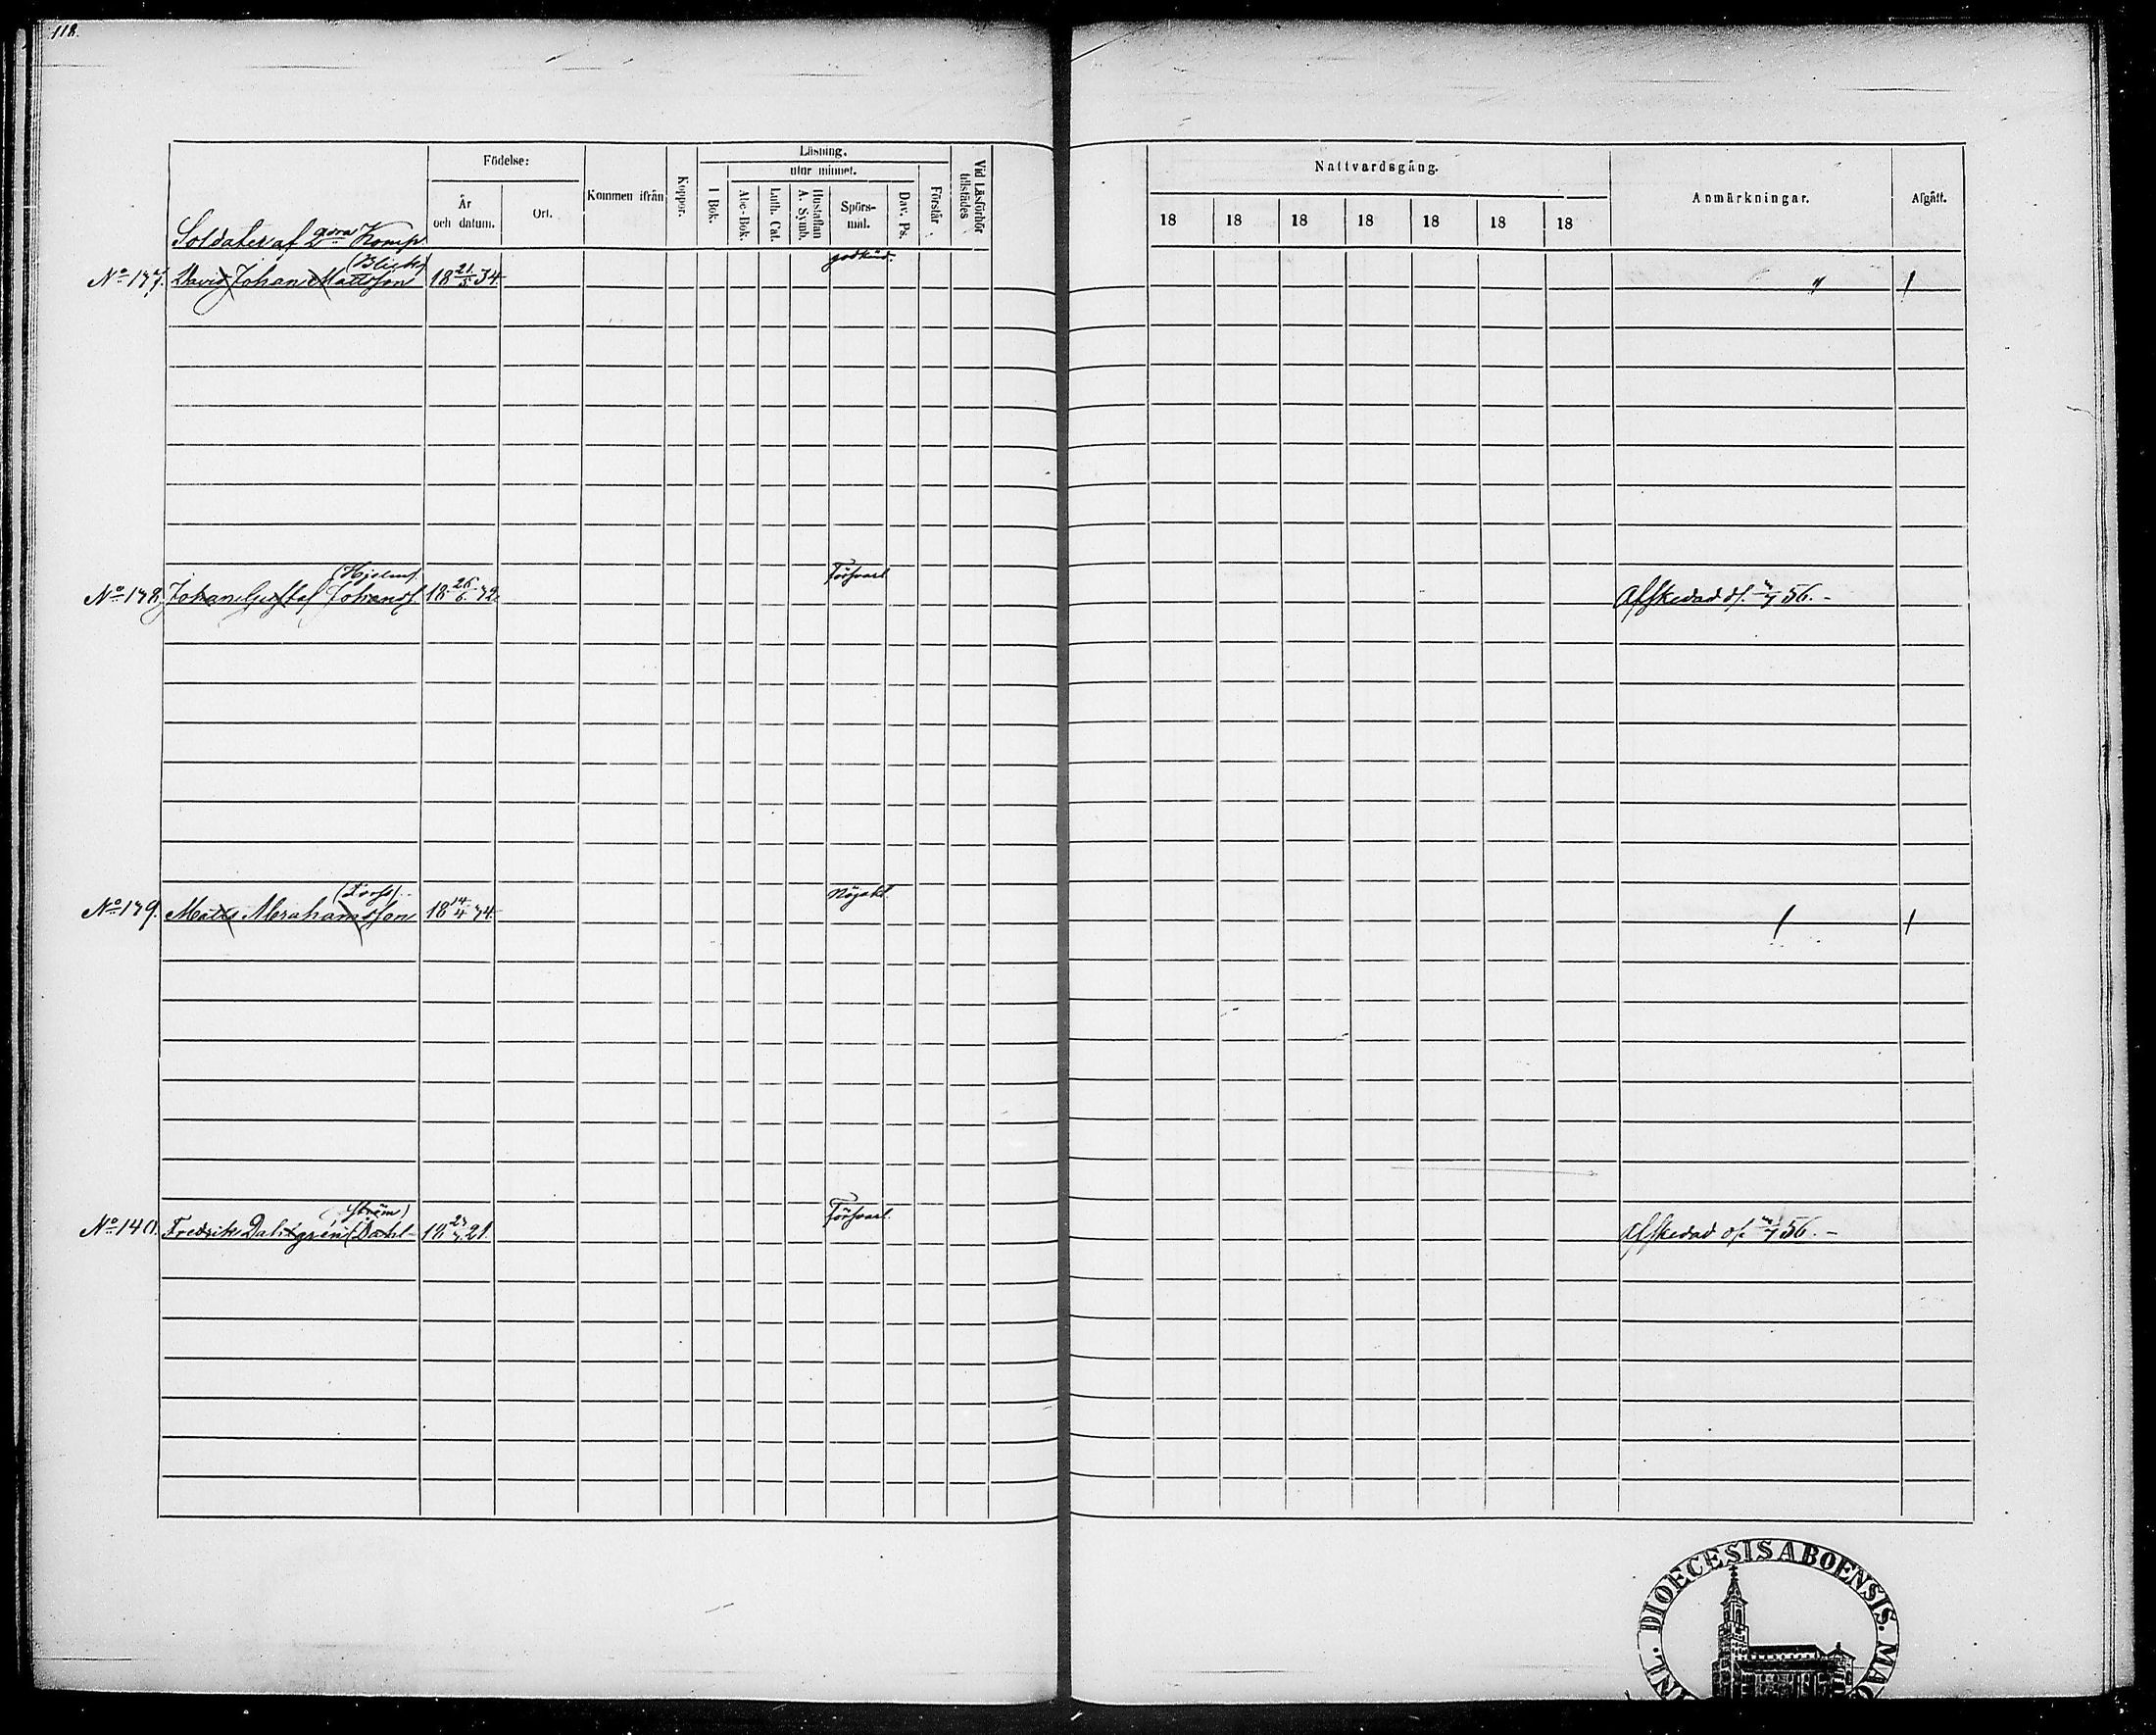 118.
Födelse:
Läsning.
utur minnet.
År och datum.
Ort.
Kommen ifrån
Koppor.
I Bok.
Abc-Bok.
Luth. Cat.
Hustaflan A. Symb.
Spörs-mal.
Dav. Ps.
Förstår.
Vid Läsförhör tillstädes
Nattvardsgång.
18 18 18 18 18 18 18
Anmärkningar.
Afgått.
Soldater af 2dra Komp
(Blick)
godkänd.
No 137. David Johan Mattsson 18 21/5 34.
(Hjelm)
Försvarl
No 138. Johan Gustaf Johanss. 18 26/6 32. Afskedad d. /7 56. -
(Fors)
Nöjakt
No 139. Matts Abrahamsson 18 14/4 34.
ström)
Försvarl.
No 140. Fredrik Dahlgren (Dahl- 18 21. Afskedad d. /7 56. -
DIOECESIS ABOENSIS. MAG